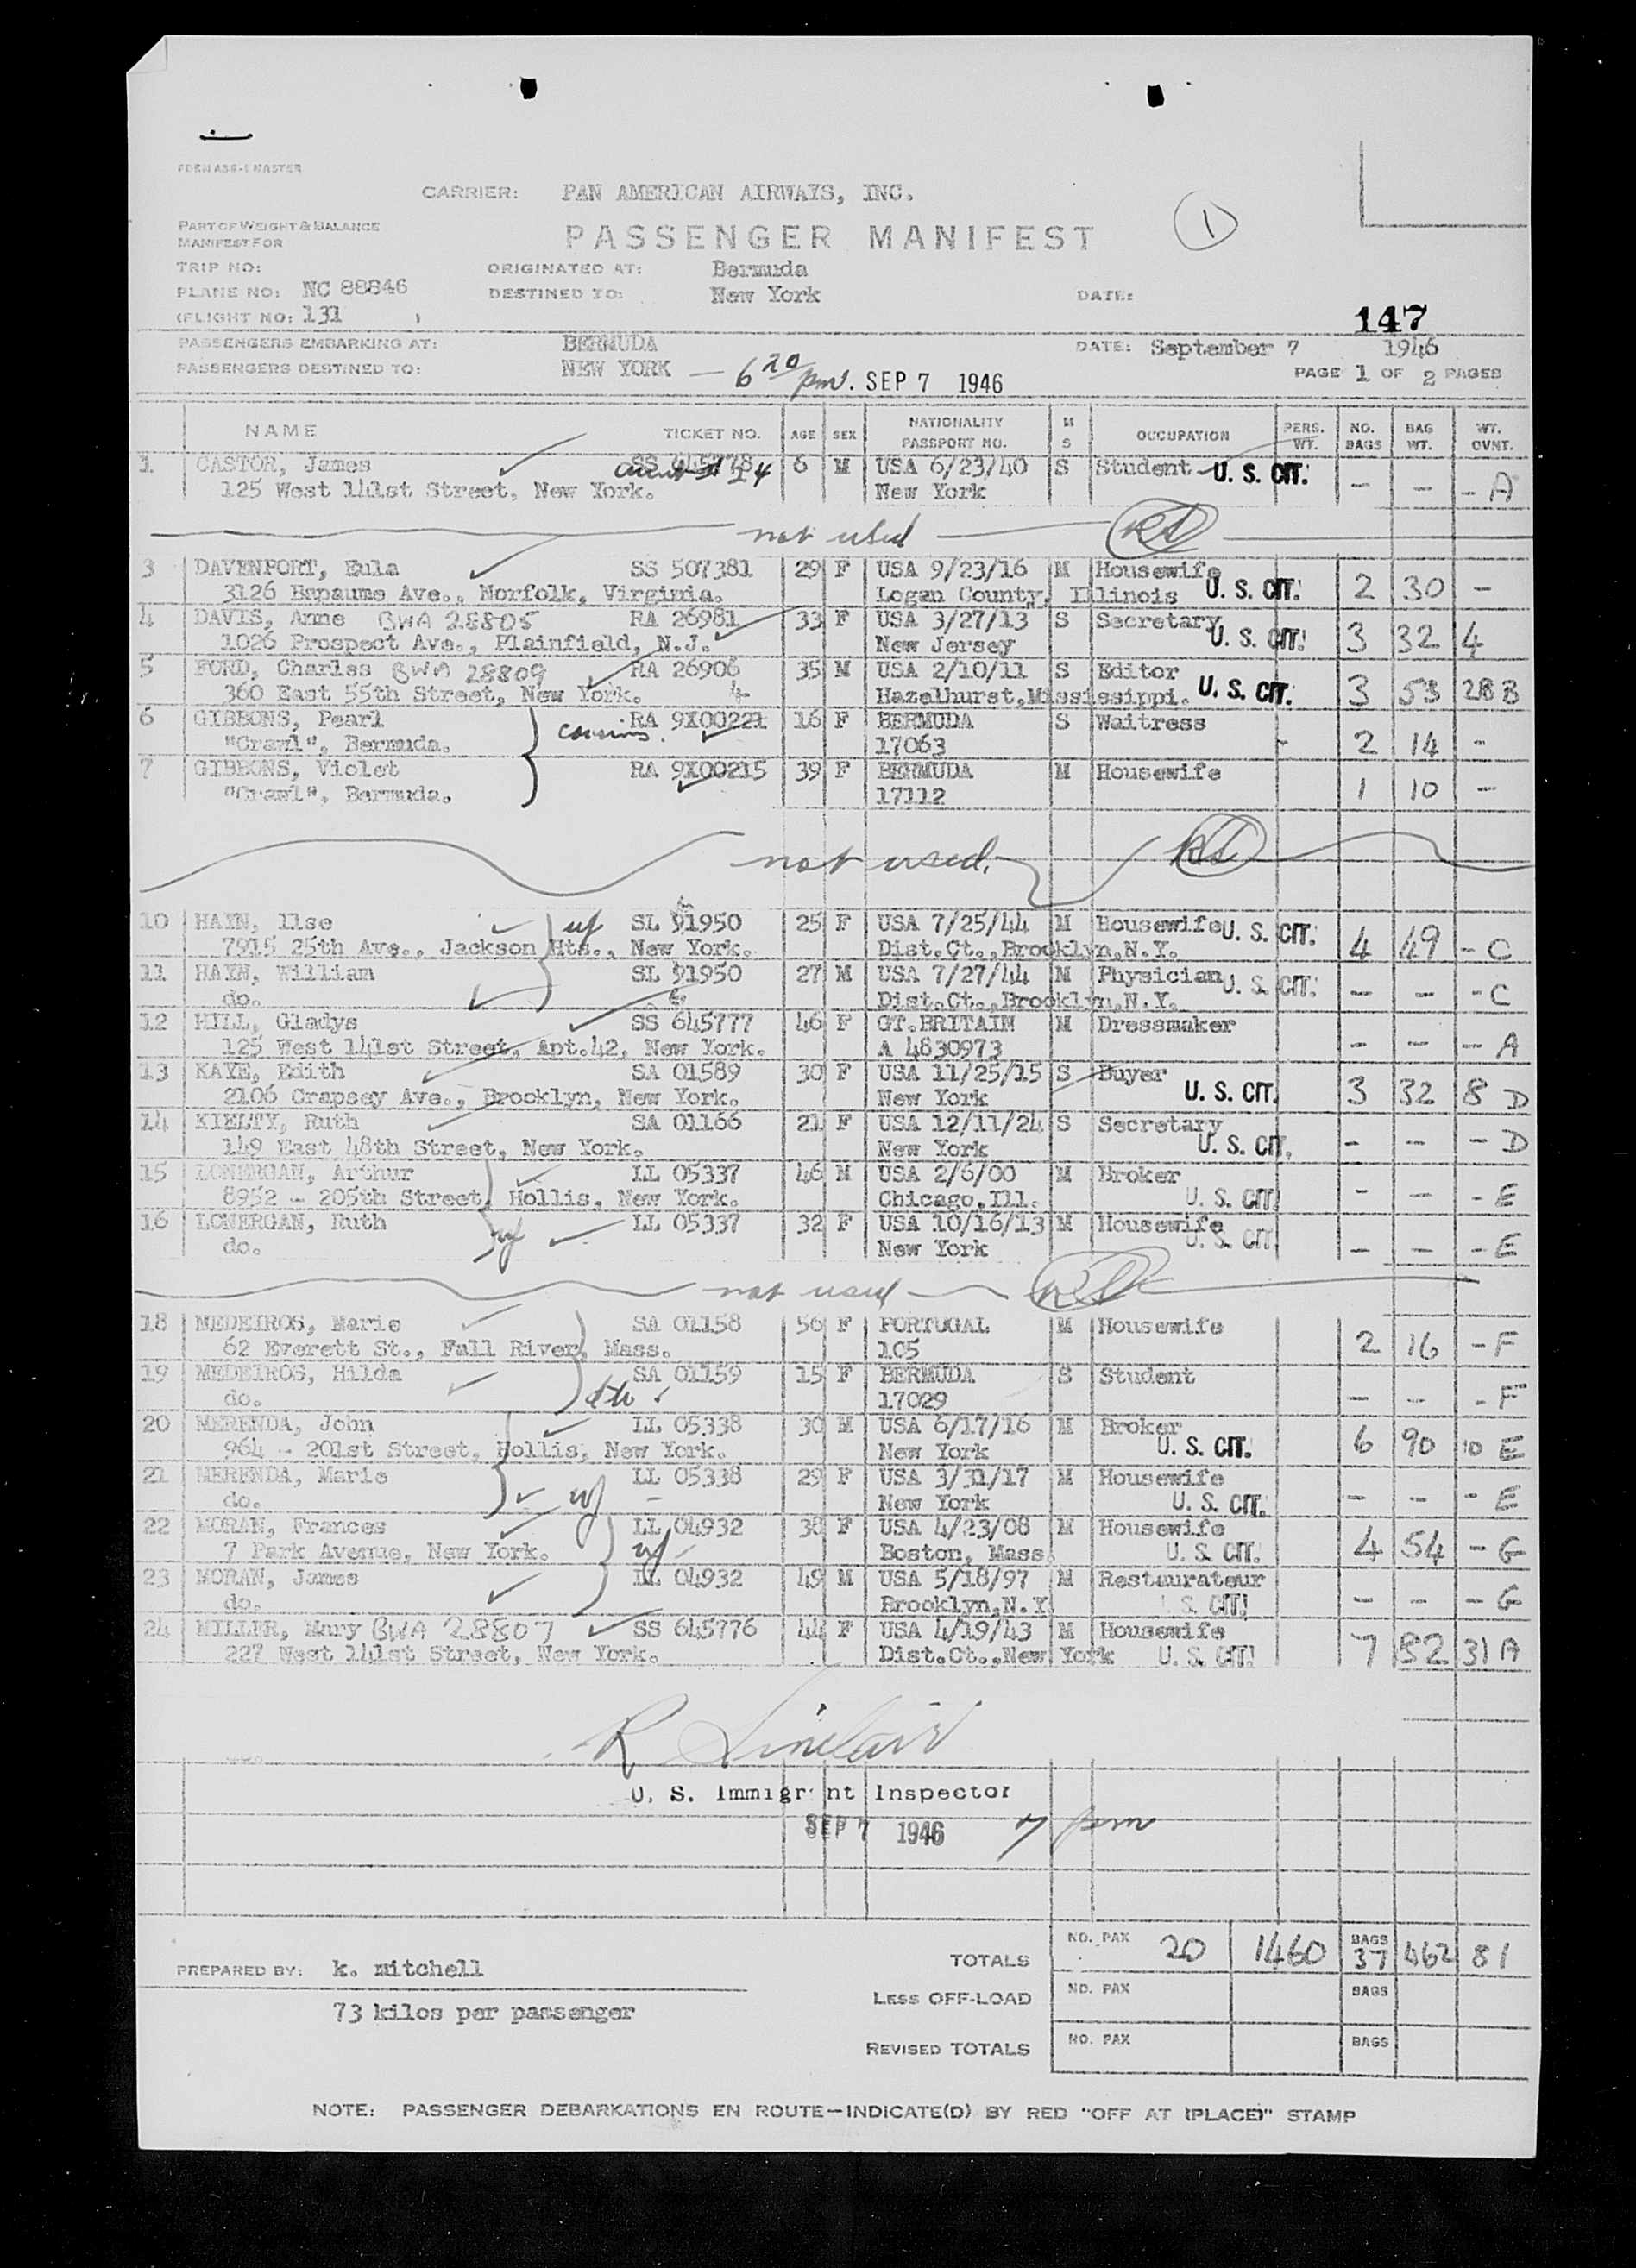 FORM ABS-1 MASTER
CARRIER: PAN AMERICAN AIRWAYS, INC.
PART OF WEIGHT & BALANCE
MANIFEST FOR
PASSENGER MANIFEST
1
TRIP NO:
ORIGINATED AT: Bermuda
PLANE NO: NC 88846
DESTINED TO: New York
DATE:
(FLIGHT NO: 131 )
147
PASSENGERS EMBARKING AT: BERMUDA
DATE: September 7 1946
PASSENGERS DESTINED TO: NEW YORK — 6 20/pm. SEP 7 1946
PAGE 1 OF 2 PAGES
NAME TICKET NO. AGE SEX NATIONALITY PASSPORT NO. M S OCCUPATION PERS. WT. NO. BAGS BAG WT. WT. OVNT.
1 CASTOR, James SS 645778 aunt # 24 6 M USA 6/23/40 S Student U. S. CIT. - - - A
125 West 141st Street, New York. New York
not used RS
3 DAVENPORT, Eula SS 507381 29 F USA 9/23/16 M Housewife U. S. CIT. 2 30 -
3126 Bapaume Ave., Norfolk, Virginia. Logan County, Illinois
4 DAVIS, Anne BWA 28805 RA 26981 33 F USA 3/27/13 S Secretary U. S. CIT. 3 32 4
1026 Prospect Ave., Plainfield, N.J. New Jersey
5 FORD, Charles BWA 28809 RA 26906 35 M USA 2/10/11 S Editor U. S. CIT. 3 53 28 B
360 East 55th Street, New York. 4 Hazelhurst, Mississippi.
6 GIBBONS, Pearl cousins. RA 9X00221 16 F BERMUDA S Waitress - 2 14 -
"Crawl", Bermuda. 17063
7 GIBBONS, Violet RA 9X00215 39 F BERMUDA M Housewife 1 10 -
"Crawl", Bermuda. 17112
not used. RS
10 HAYN, Ilse w/ SL 91950 25 F USA 7/25/44 M Housewife U. S. CIT. 4 49 - C
7915 25th Ave., Jackson Hts., New York. Dist.Ct.,Brooklyn,N.Y.
11 HAYN, William SL 91950 27 M USA 7/27/44 M Physician U. S. CIT. - - - C
do. Dist.Ct.,Brooklyn,N.Y.
12 HILL, Gladys SS 645777 46 F GT.BRITAIN M Dressmaker - - - A
125 West 141st Street, Apt.42, New York. A 4830973
13 KAYE, Edith SA 01589 30 F USA 11/25/15 S Buyer U. S. CIT. 3 32 8 D
2106 Cropsey Ave., Brooklyn, New York. New York
14 KIELTY, Ruth SA 01166 21 F USA 12/11/24 S Secretary U. S. CIT. - - - D
149 East 48th Street, New York. New York
15 LONERGAN, Arthur LL 05337 46 M USA 2/6/00 M Broker U. S. CIT. - - - E
8952 - 205th Street, Hollis, New York. Chicago, Ill.
16 LONERGAN, Ruth w/ LL 05337 32 F USA 10/16/13 M Housewife U. S. CIT. - - - E
do. New York
not used RS
18 MEDEIROS, Marie SA 01158 56 F PORTUGAL M Housewife 2 16 - F
62 Everett St., Fall River, Mass. 105
19 MEDEIROS, Hilda dtr SA 01159 15 F BERMUDA S Student - - - F
do. 17029
20 MERENDA, John LL 05338 30 M USA 6/17/16 M Broker U. S. CIT. 6 90 10 E
964 - 201st Street, Hollis, New York. New York
21 MERENDA, Marie w/ LL 05338 29 F USA 3/31/17 M Housewife U. S. CIT. - - - E
do. New York
22 MORAN, Frances w/ LL 04932 38 F USA 4/23/08 M Housewife U. S. CIT. 4 54 - G
7 Park Avenue, New York. Boston, Mass.
23 MORAN, James LL 04932 49 M USA 5/18/97 M Restaurateur U. S. CIT. - - - G
do. Brooklyn,N.Y.
24 MILLER, Mary BWA 28807 SS 645776 44 F USA 4/19/43 M Housewife U. S. CIT. 7 82 31 A
227 West 141st Street, New York. Dist.Ct.,New York
R Sinclair
U. S. Immigrant Inspector
SEP 7 1946 7 pm
TOTALS NO. PAX 20 1460 BAGS 37 462 81
PREPARED BY: k. mitchell
LESS OFF-LOAD NO. PAX BAGS
73 kilos per passenger
REVISED TOTALS NO. PAX BAGS
NOTE: PASSENGER DEBARKATIONS EN ROUTE—INDICATE(D) BY RED "OFF AT (PLACE)" STAMP